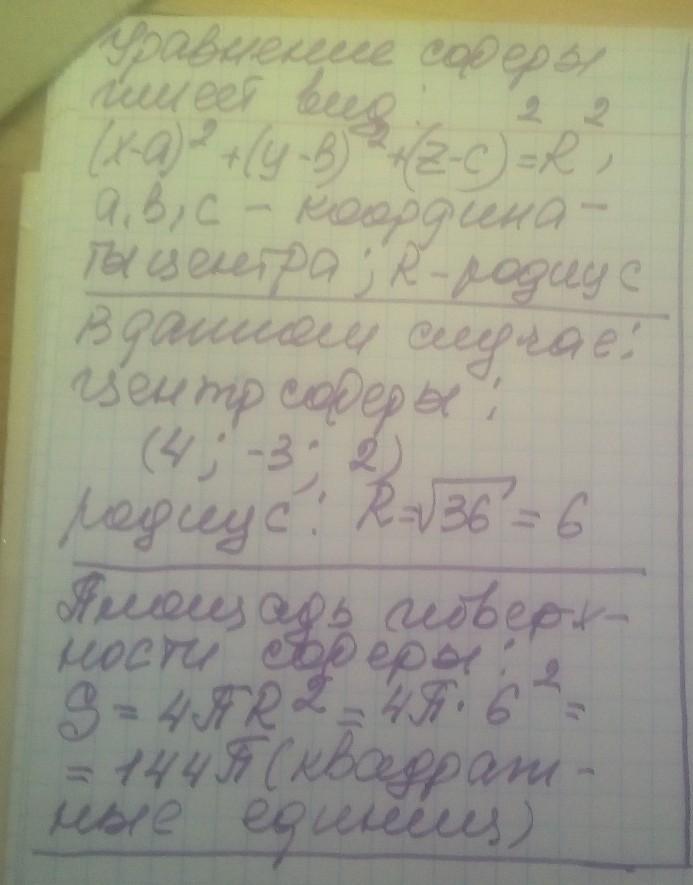 Уравнение сферы
имеет вид:
(x-a)² + (y-в)² + (z-c)² = R²,
a, в, c - координа-
ты центра; R - радиус
В данном случае:
центр сферы:
(4; -3; 2)
радиус: R = √36 = 6
Площадь поверх-
ности сферы:
S = 4πR² = 4π · 6² =
= 144π (квадрат-
ные единиц)